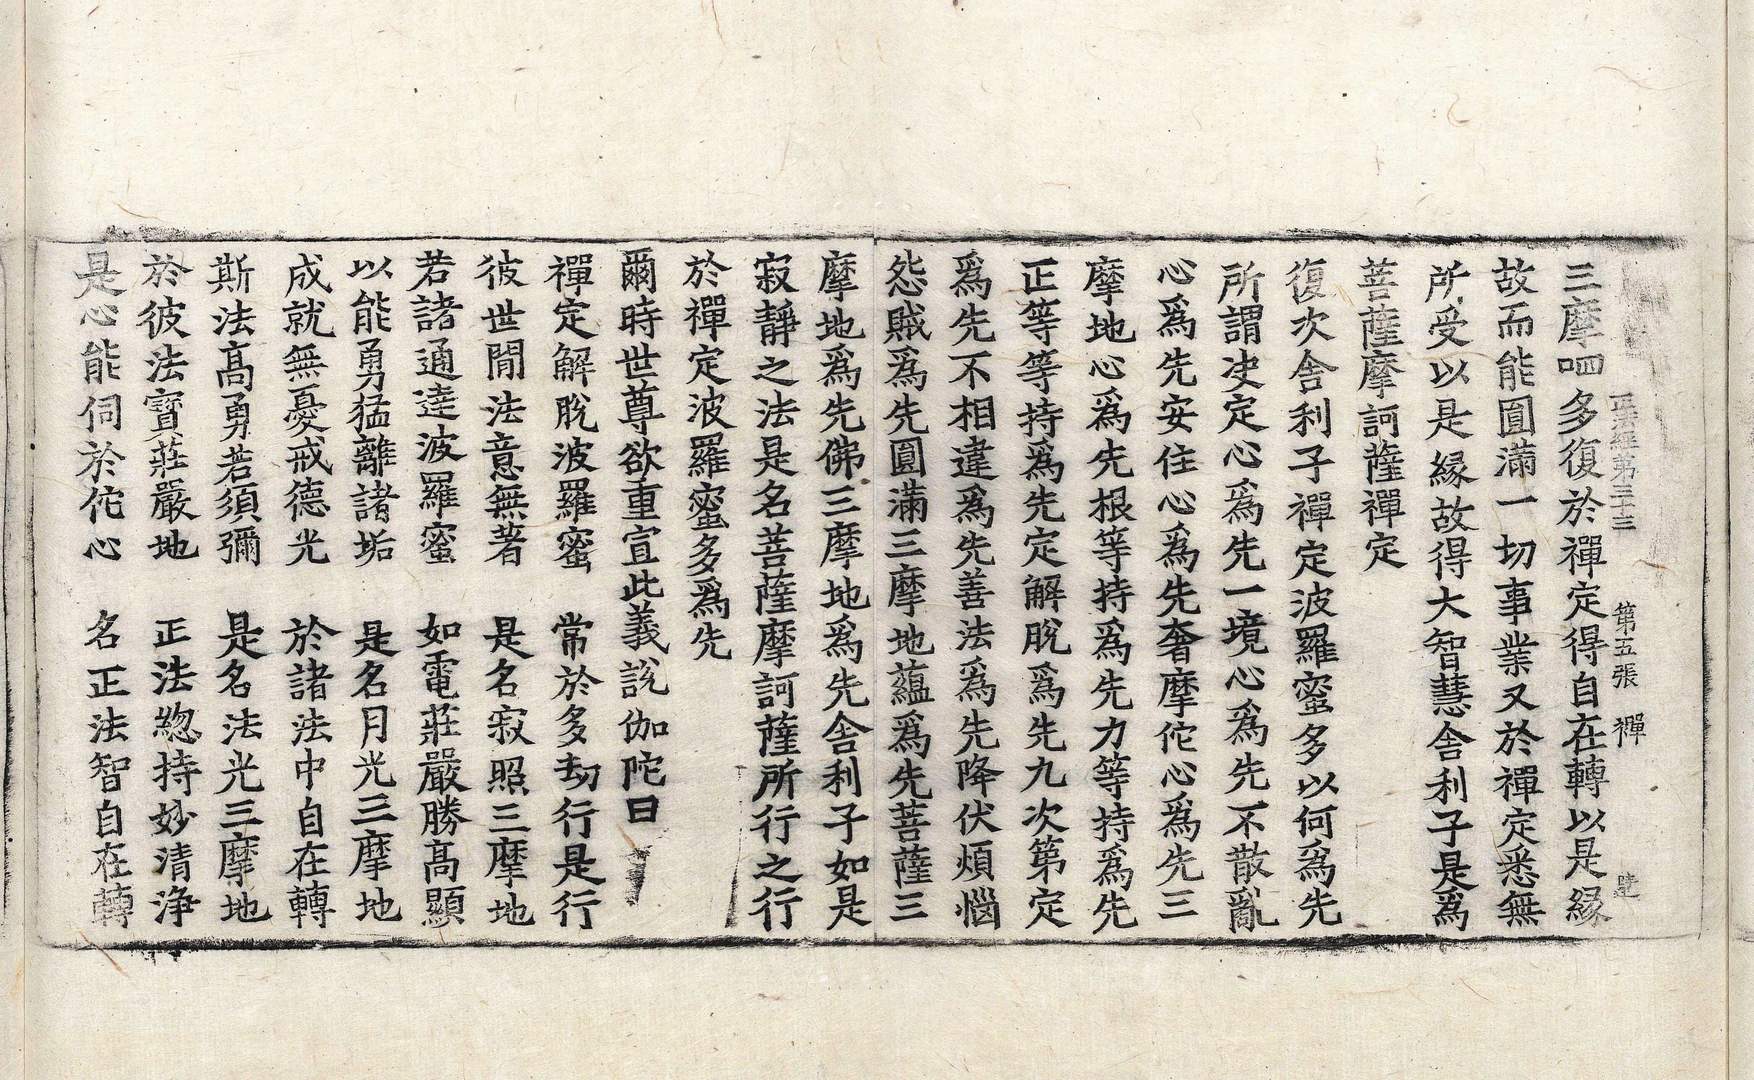 正法經第三十三　第五張　禪
三摩呬多復於禪定得自在轉以是緣
故而能圓滿一切事業又於禪定悉無
所受以是緣故得大智慧舍利子是爲
菩薩摩訶薩禪定
復次舍利子禪定波羅蜜多以何爲先
所謂决定心爲先一境心爲先不散亂
心爲先安住心爲先奢摩佗心爲先三
摩地心爲先根等持爲先力等持爲先
正等等持爲先定解脫爲先九次第定
爲先不相違爲先善法爲先降伏煩惱
怨賊爲先圓滿三摩地蘊爲先菩薩三
摩地爲先佛三摩地爲先舍利子如是
寂靜之法是名菩薩摩訶薩所行之行
於禪定波羅蜜多爲先
爾時世尊欲重宣此義說伽陀曰
禪定解脫波羅蜜　常於多劫行是行
彼世間法意無著　是名寂照三摩地
若諸通達波羅蜜　如電莊嚴勝高顯
以能勇猛離諸垢　是名月光三摩地
成就無憂戒德光　於諸法中自在轉
斯法高勇若須彌　是名法光三摩地
於彼法寶莊嚴地　正法緫持妙清淨
是心能伺於佗心　名正法智自在轉